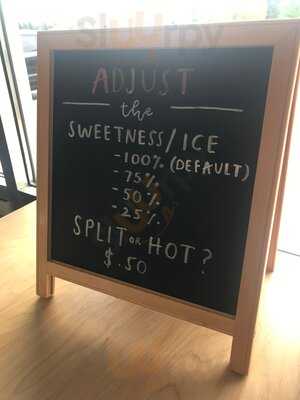 Slurrpy
ADJUST
the
SWEETNESS/ICE
-100% (DEFAULT)
-75%
-50%
-25%
SPLIT OR HOT?
$.50